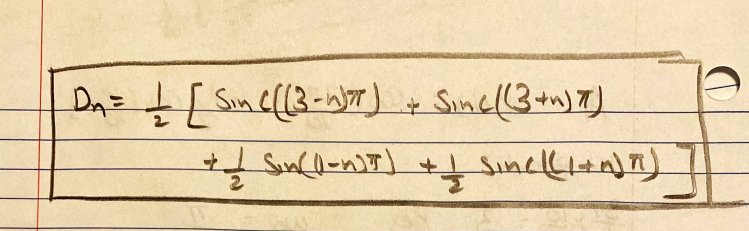 Dn = 1/2 [ Sinc((3-n)π) + Sinc((3+n)π)
+ 1/2 Sin((1-n)π) + 1/2 Sinc((1+n)π) ]